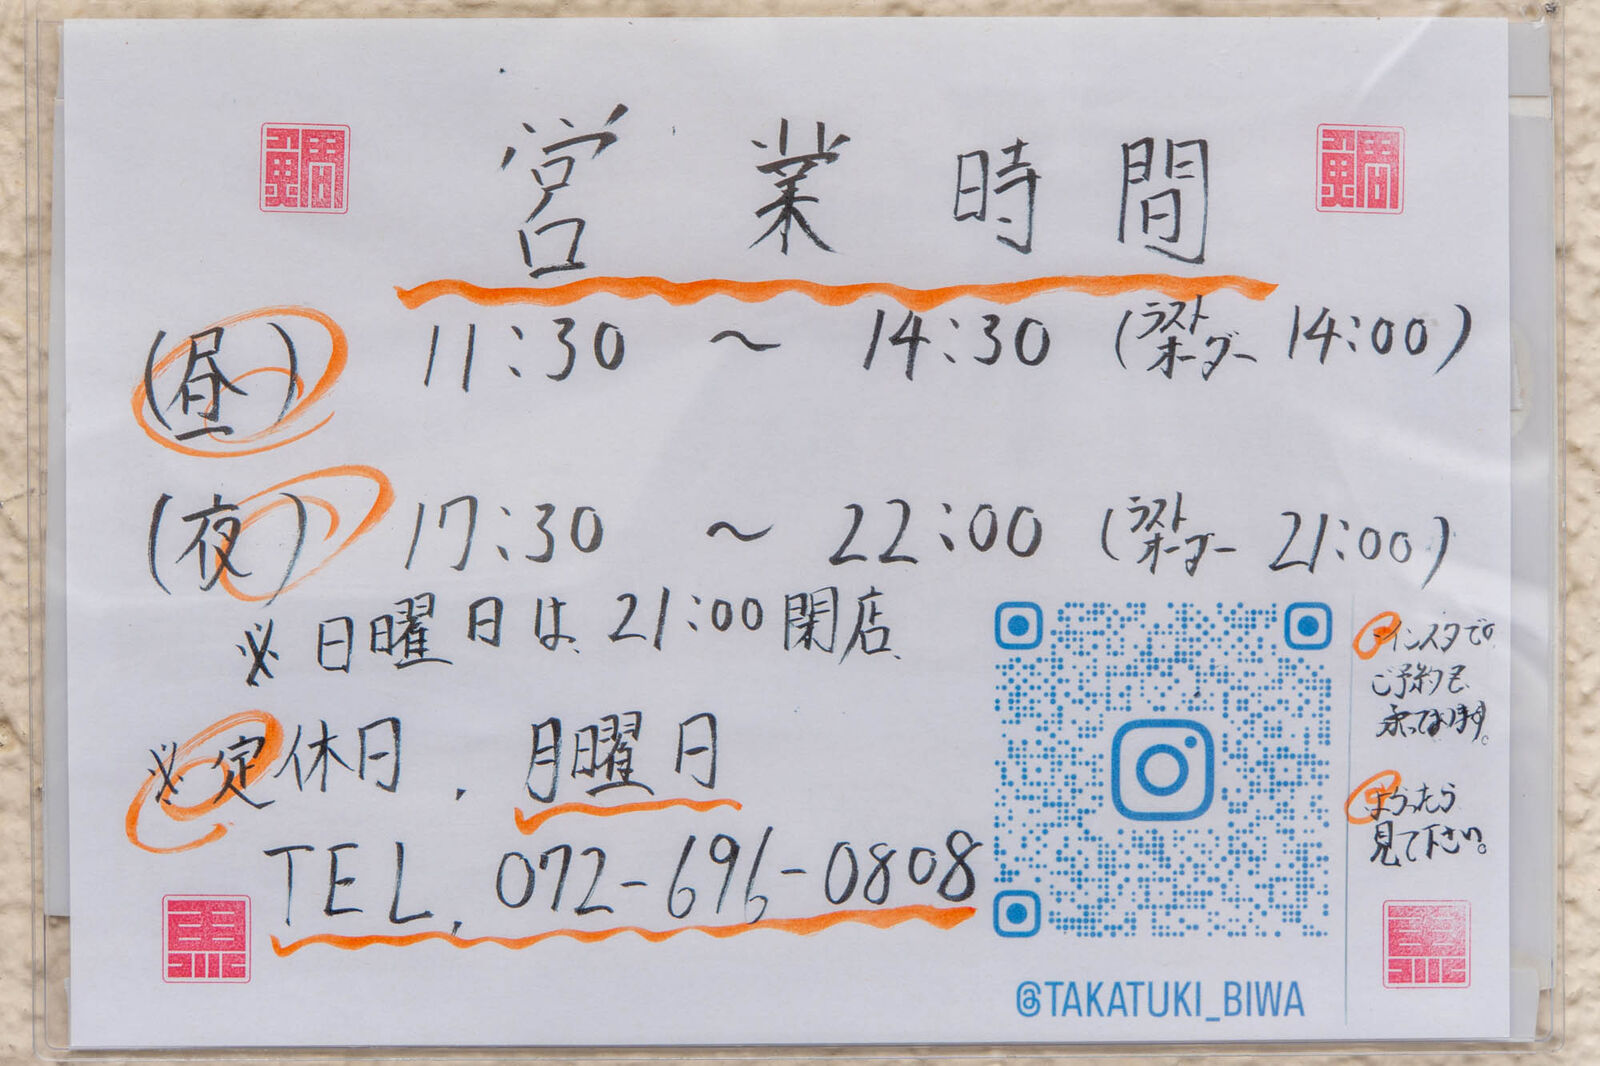 営業時間
(昼) 11:30 ～ 14:30 (ラストオーダー 14:00)
(夜) 17:30 ～ 22:00 (ラストオーダー 21:00)
※日曜日は 21:00閉店
※定休日. 月曜日
TEL. 072-696-0808
インスタで
ご予約も
承っております。
よろったら
見て下さい。
@TAKATUKI_BIWA